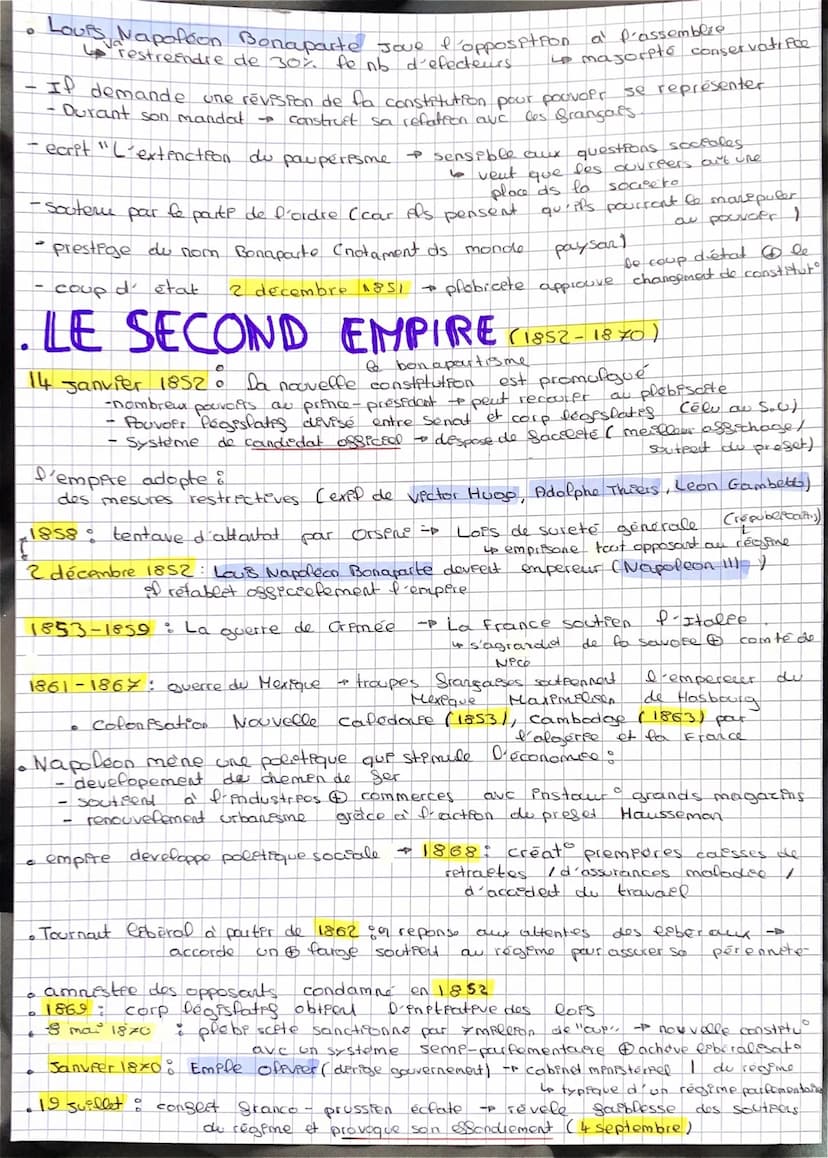 • Louis Napoléon Bonaparte joue l'opposition à l'assemblée
↳ va restreindre de 30% le nb d'électeurs ↳ majorité conservatrice
- Il demande une révision de la constitution pour pouvoir se représenter
- Durant son mandat → construit sa relation avc les français.
- ecrit "L'extinction du paupérisme → sensible aux questions sociales
↳ veut que les ouvriers aient une
place ds la société
- soutenu par le parti de l'ordre (car ils pensent qu'ils pourront le manipuler
au pouvoir)
- prestige du nom Bonaparte (notament ds monde paysan)
- coup d'état 2 décembre 1851 → plébicite approuve le coup d'état ⊕ le
changement de constitut°
. LE SECOND EMPIRE (1852-1870)
& bonapartisme
14 janvier 1852 : la nouvelle constitution est promulgué
- nombreux pouvoirs au prince-président → peut recourir au plébiscite
- Pouvoir législatif divisé entre Sénat et corp législatif (élu au S.U)
- Système de candidat officiel → dispose de facilité (meilleur affichage /
soutient du préfet)
l'empire adopte :
des mesures restrictives (exil de Victor Hugo, Adolphe Thiers, Léon Gambetta)
(républicains)
1858 : tentave d'attentat par Orsini → Lois de sureté générale
↳ emprisone tout opposant au régime
2 décembre 1852 : Louis Napoléon Bonaparte devient empereur (Napoléon III)
il rétablit officiellement l'empire
1853-1859 : La guerre de Crimée → La France soutien l'Italie
↳ s'agrandit de la savoie ⊕ comté de
Nice
1861-1867 : guerre du Mexique → troupes françaises soutiennent l'empereur du
Mexique Maximilien de Hasbourg
• Colonisation Nouvelle Calédonie (1853), Cambodge (1863) par
l'algérie et la France
• Napoléon mène une politique qui stimule l'économie :
- developement de chemin de fer
- soutient à l'industries ⊕ commerces avc instaur° grands magazins
- renouvelement urbanisme grâce à l'action du prefet Hausseman
• empire developpe politique sociale → 1868 : créat° premières caisses de
retraites / d'assurances maladie /
d'accident du travail
• Tournant libéral à partir de 1862 : en réponse aux attentes des libéraux →
accorde un ⊕ large soutient au régime pour assurer sa pérennité
• amnistie des opposants condamné en 1852
• 1869 : corp législatif obtient l'initiative des lois
• 8 mai 1870 : plébiscite sanctionne par "oui" → nouvelle constitu°
avec un système semi-parlementaire ⊕ achève libéralisat°
• Janvier 1870 : Emile Olivier (dirige gouvernement) → cabinet ministériel 1 du régime
↳ typique d'un régime parlementaire
• 19 juillet : conflit franco-prussien éclate → révèle faiblesse des soutiens
du régime et provoque son effondrement (4 septembre)